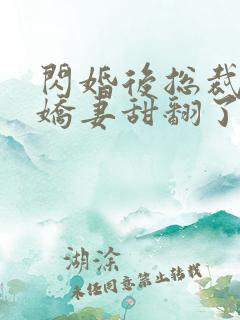 閃婚後总裁
嬌妻甜翻了
湖涂
未经同意禁止转载